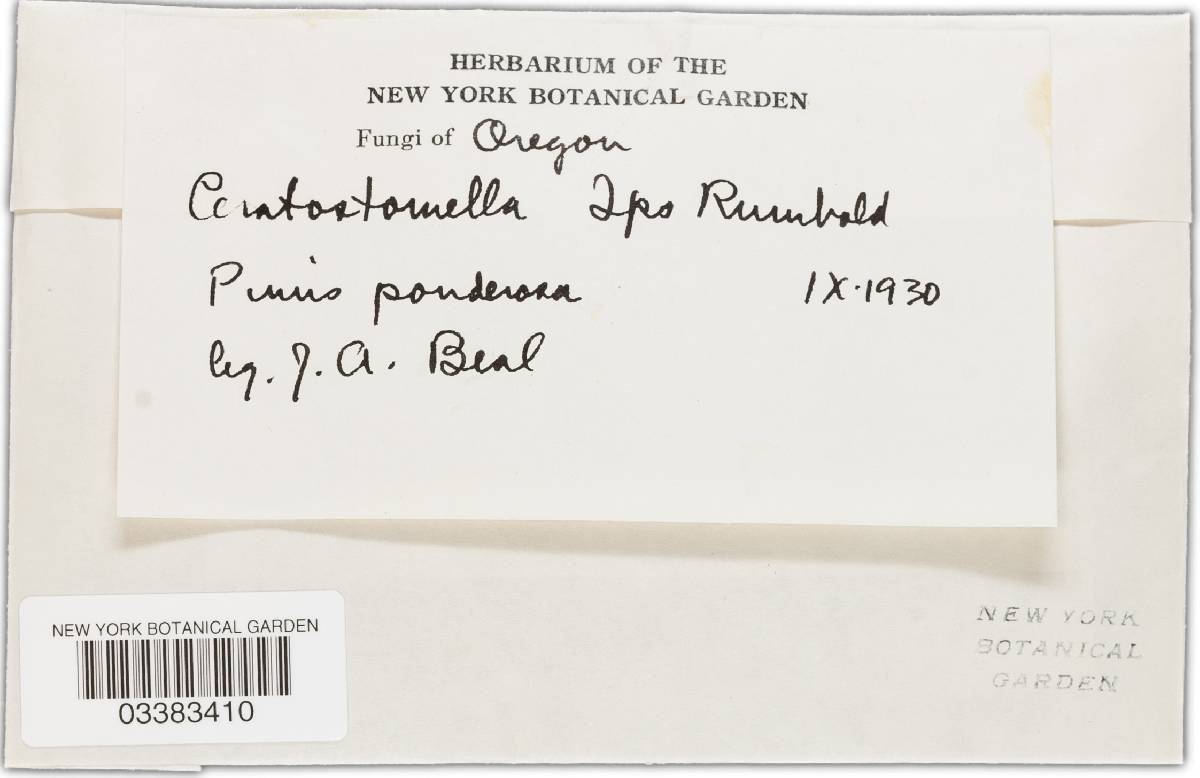 HERBARIUM OF THE
NEW YORK BOTANICAL GARDEN
Fungi of Oregon
Ceratostomella Ips Rumbold
Pinus ponderosa IX.1930
leg. J. A. Beal
NEW YORK BOTANICAL GARDEN
03383410
NEW YORK
BOTANICAL
GARDEN